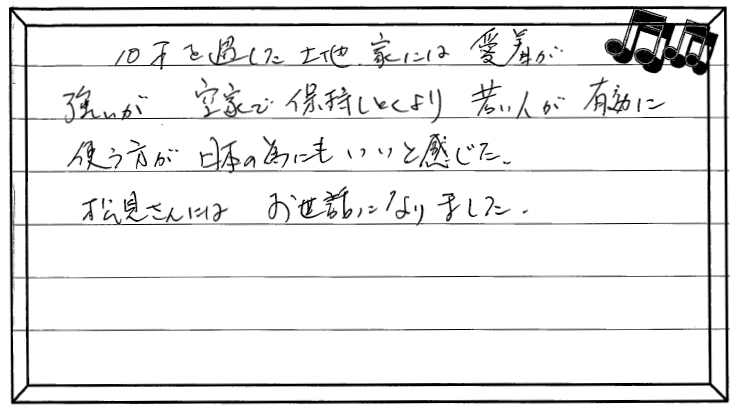 10才を過した土地 家には 愛着が
強いが 空家で保持しとくより 若い人が 有効に
使う方が 日本の為にもいいと感じた。
松見さんには お世話になりました。